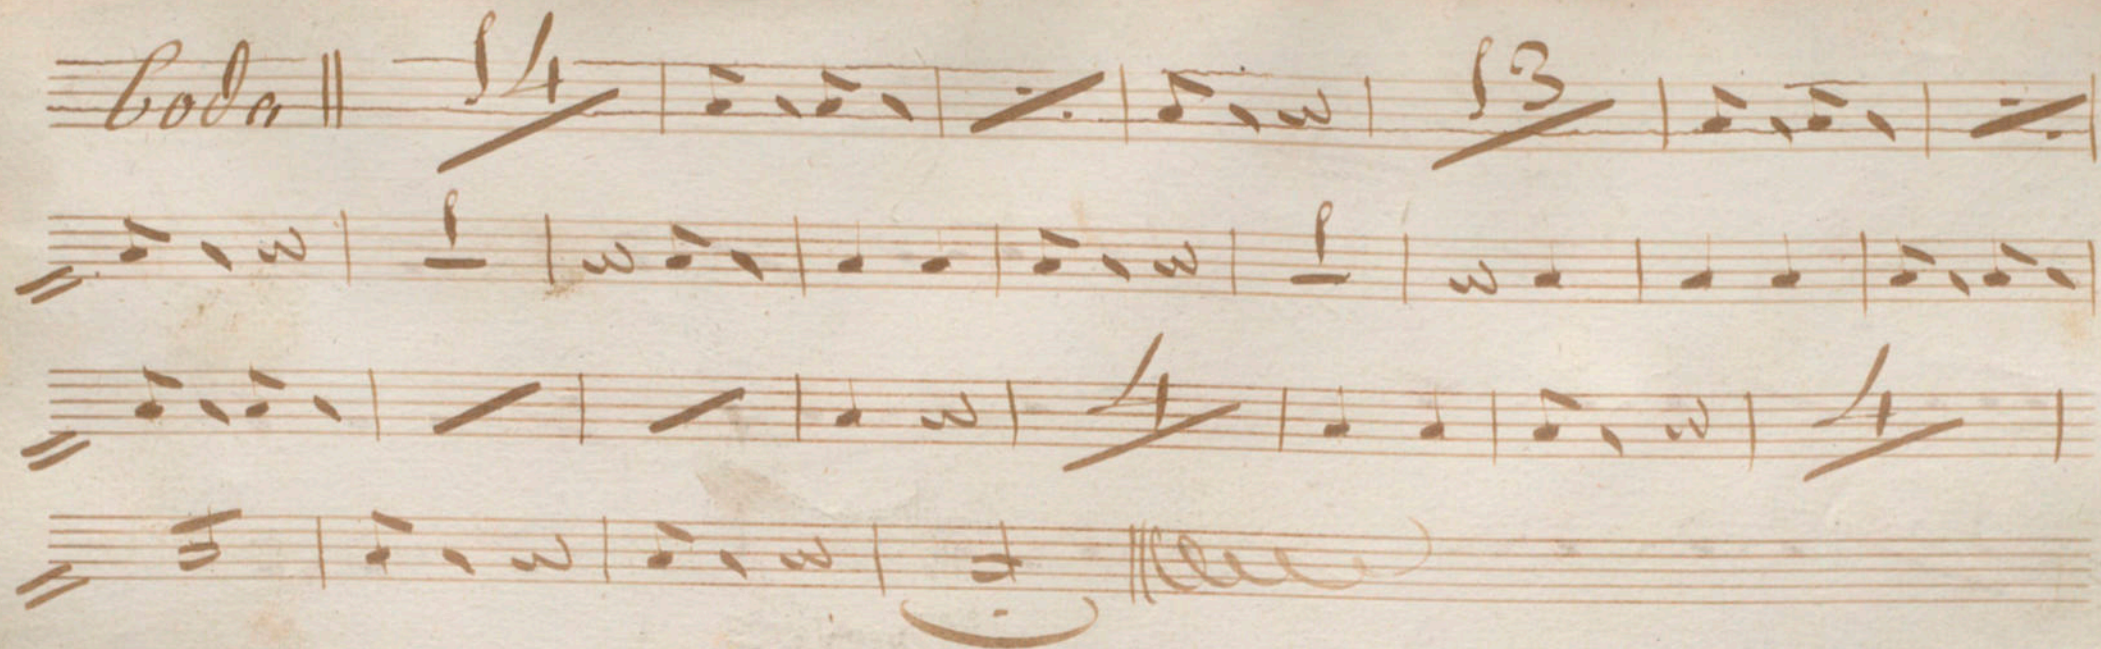 Coda 14 13
1 1
4 4